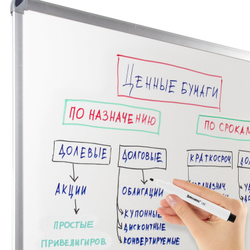 ЦЕННЫЕ БУМАГИ
ПО НАЗНАЧЕНИЮ
ПО СРОКАМ
ДОЛЕВЫЕ
ДОЛГОВЫЕ
КРАТКОСРОЧ
АКЦИИ
ОБЛИГАЦИИ
ПРОСТЫЕ
КУПОННЫЕ
ДИСКОНТНЫЕ
ПРИВЕДИГИРОВ
КОНВЕРТИРУЕМЫЕ